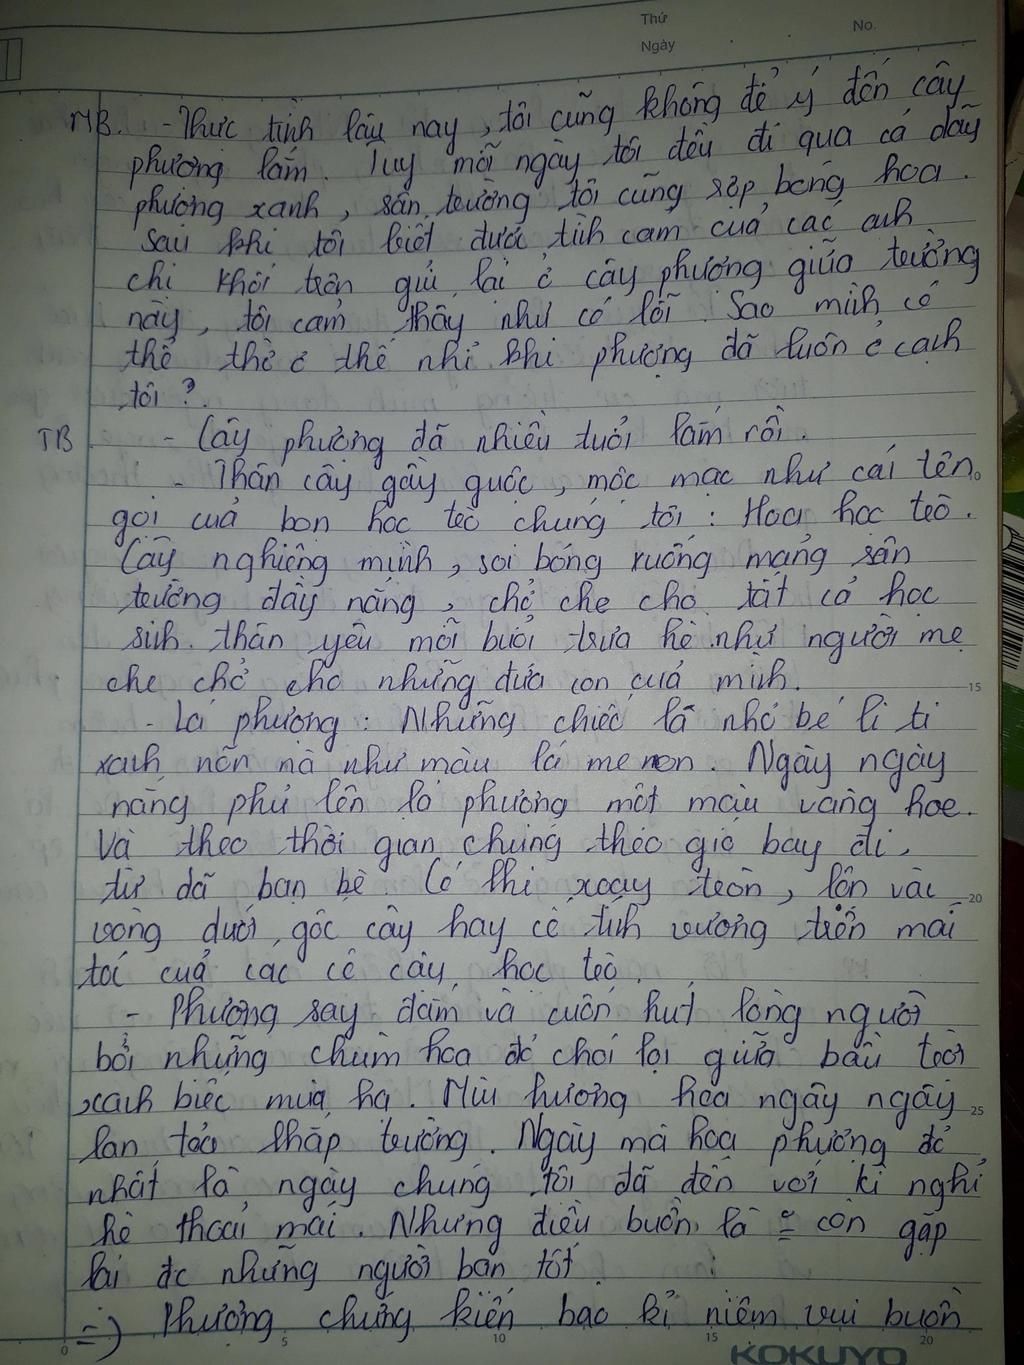 Thứ
No.
Ngày
MB. - Thực tình lâu nay, tôi cũng không để ý đến cây
phượng lắm. Tuy mỗi ngày tôi đều đi qua cả dãy
phượng xanh, sân trường tôi cũng rợp bóng hoa.
Sau khi tôi biết được tình cảm của các anh
chị khối trên gửi lại ở cây phượng giữa trường
này, tôi cảm thấy như có lỗi. Sao mình có
thể thờ ơ thế nhỉ khi phượng đã luôn ở cạnh
tôi?
TB - Cây phượng đã nhiều tuổi lắm rồi.
- Thân cây gầy guộc, mộc mạc như cái tên
gọi của bọn học trò chúng tôi: Hoa học trò.
Cây nghiêng mình, soi bóng xuống mảng sân
trường đầy nắng, chở che cho tất cả học
sinh thân yêu mỗi buổi trưa hè như người mẹ
che chở cho những đứa con của mình.
- Lá phượng: Những chiếc lá nhỏ bé li ti
xanh nõn nà như màu lá me non. Ngày ngày
nắng phủ lên lá phượng một màu vàng hoe.
Và theo thời gian chúng theo gió bay đi,
từ dã bạn bè. Có khi xoay tròn, lộn vài
vòng dưới gốc cây hay cố tình vương trên mái
tóc của các cô cậu học trò.
- Phượng say đắm và cuốn hút lòng người
bởi những chùm hoa đỏ chói lọi giữa bầu trời
xanh biếc mùa hạ. Mùi hương hoa ngây ngây
lan tỏa khắp trường. Ngày mà hoa phượng đỏ
nhất là ngày chúng tôi đã đến với kì nghỉ
hè thoải mái. Nhưng điều buồn là còn gặp
lại đc những người bạn tốt.
=) Phượng chứng kiến bao kỉ niệm vui buồn
10
15
20
25
0 5 10 15 20
KOKUYO